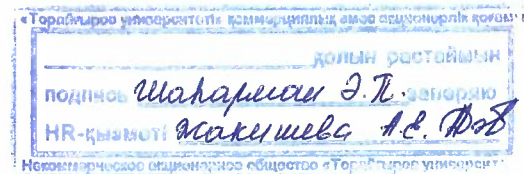 «Торайғыров университеті» коммерциялық емес акционерлік қоғамы
қолын растаймын
подпись Шаһарман Э.П. заверяю
HR-қызметі Жакишева А.Е.
Некоммерческое акционерное общество «Торайғыров университет»